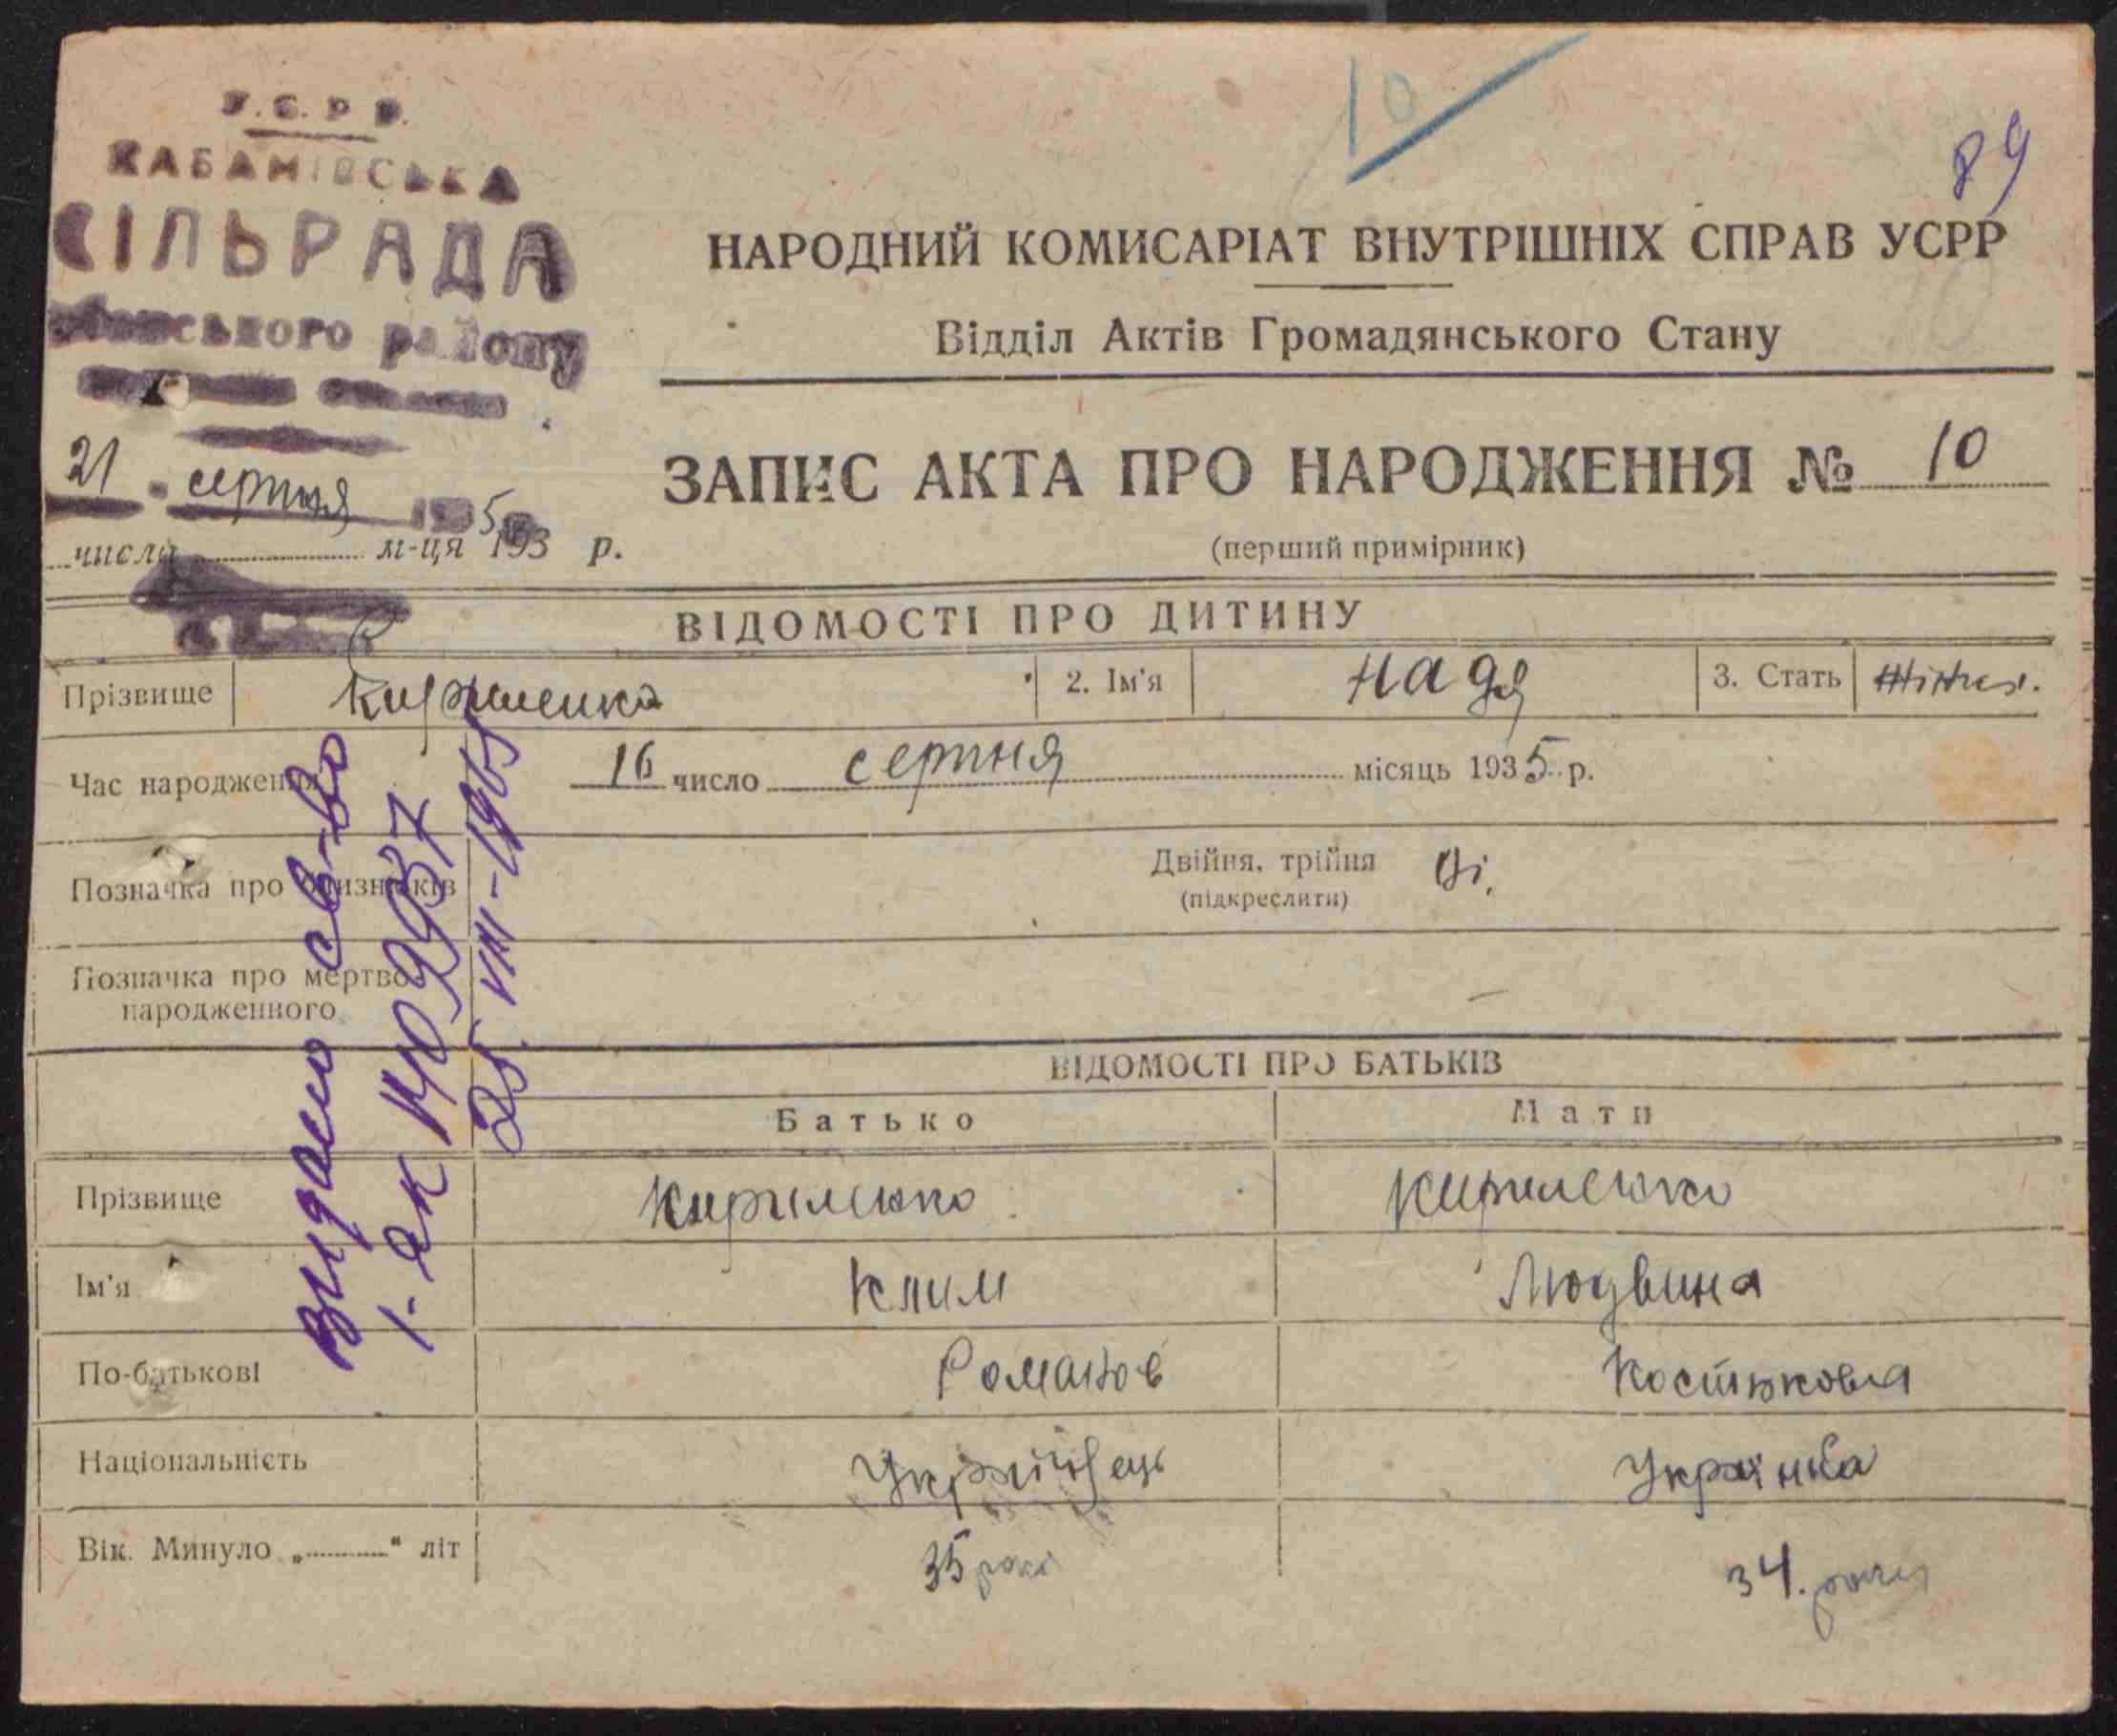 У.С.Р.Р.
КАБАНІВСЬКА
СІЛЬРАДА
району
10
89
НАРОДНИЙ КОМИСАРІАТ ВНУТРІШНІХ СПРАВ УСРР
Відділ Актів Громадянського Стану
21 серпня 1935
числа м-ця 193 р.
ЗАПИС АКТА ПРО НАРОДЖЕННЯ № 10
(перший примірник)
ВІДОМОСТІ ПРО ДИТИНУ
Прізвище Кириленко 2. Ім'я Надя 3. Стать
Час народження 16 число серпня місяць 1935 р.
Позначка про близнюків Двійня, трійня
(підкреслити)
Позначка про мертво-
народженного —
видано св-во
1-ЯК № 409937
25-VIII-1965
ВІДОМОСТІ ПРО БАТЬКІВ
Батько Мати
Прізвище Кириленко Кириленко
Ім'я Клим Людвина
По-батькові Романов Костюковна
Національність Українець Українка
Вік. Минуло „ “ літ 35 рокі 34. роки